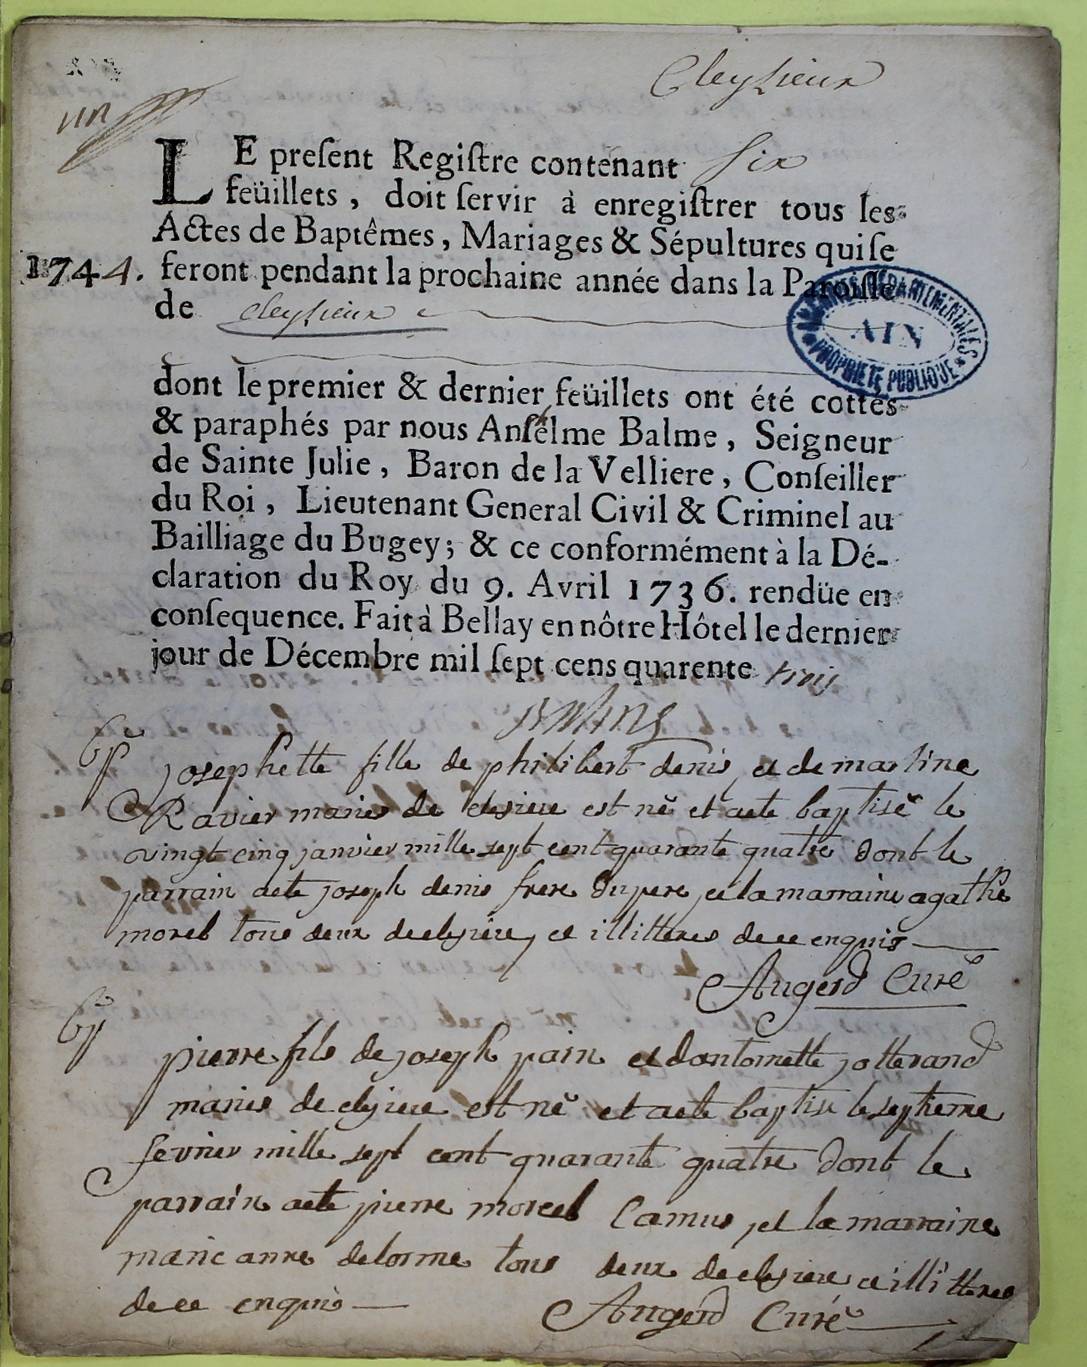 Cleyzieux
un
LE preſent Regiſtre contenant six
feüillets, doit ſervir à enregiſtrer tous les
Actes de Baptêmes, Mariages & Sépultures qui ſe
1744. feront pendant la prochaine année dans la Paroiſſe
de cleyzieux
ARCHIVES DÉPARTEMENTALES
AIN
PROPRIÉTÉ PUBLIQUE
dont le premier & dernier feüillets ont été cottés
& paraphés par nous Anſelme Balme, Seigneur
de Sainte Julie, Baron de la Velliere, Conſeiller
du Roi, Lieutenant General Civil & Criminel au
Bailliage du Bugey; & ce conformément à la Dé-
claration du Roy du 9. Avril 1736. rendüe en
conſequence. Fait à Bellay en nôtre Hôtel le dernier
jour de Décembre mil ſept cens quarente trois
josephette fille de philibert denis et de martine
Ravier mariés de clesieu est né et aeté baptisé le
vingt cinq janvier mille sept cent quarante quatre dont le
parrain aeté joseph denis frere du pere, et la marraine agathe
morel tous deux de clesieu, et illitteres de ce enquis
Augerd Curé
pierre fils de joseph pain et dantoinette jotterand
mariés de clesieu est né et aeté baptisé le septieme
fevrier mille sept cent quarante quatre dont le
parrain aeté pierre morel Camus, et la marraine
marie anne delorme tous deux de clesieu et illitteres
de ce enquis Augerd Curé